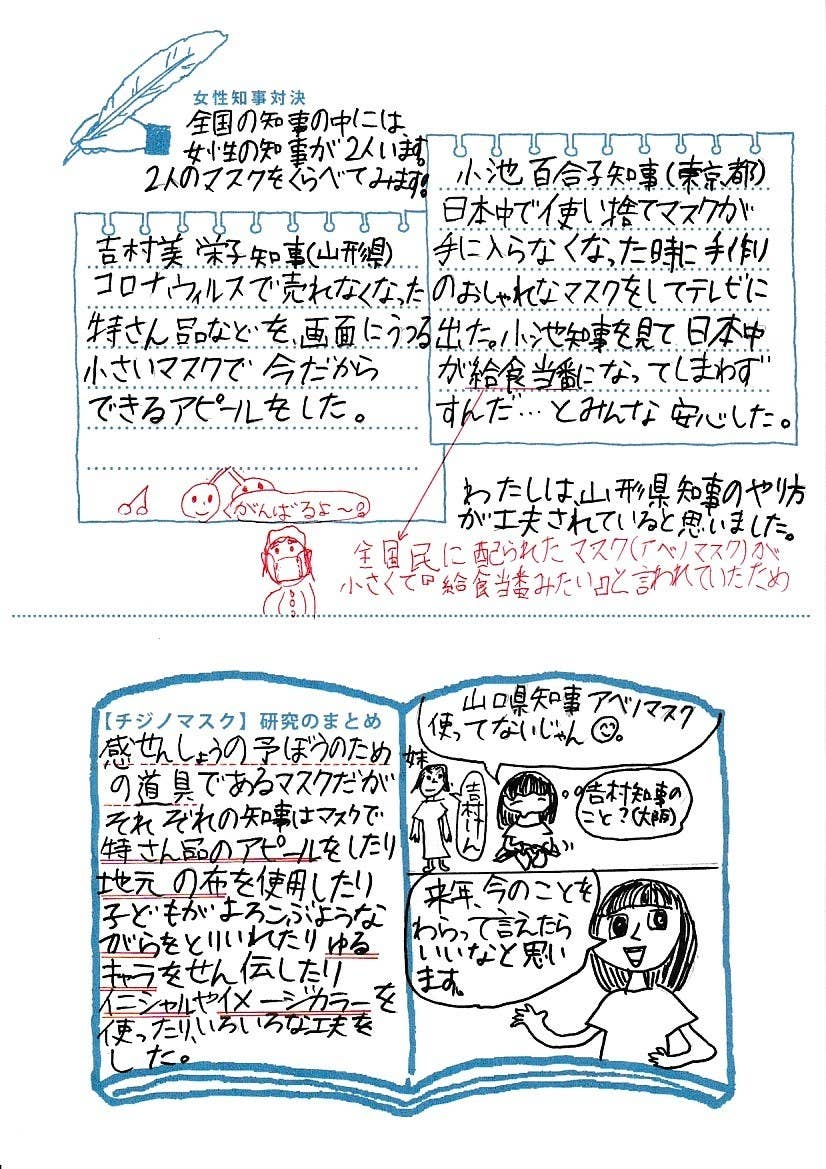 女性知事対決
全国の知事の中には
女性の知事が2人います。
2人のマスクをくらべてみます!
吉村美栄子知事(山形県)
コロナウィルスで売れなくなった
特さん品などを、画面にうつる
小さいマスクで今だから
できるアピールをした。
がんばるよ〜。
小池百合子知事(東京都)
日本中で使い捨てマスクが
手に入らなくなった時に手作り
のおしゃれなマスクをしてテレビに
出た。小池知事を見て日本中
が給食当番になってしまわず
すんだ…とみんな安心した。
わたしは、山形県知事のやり方
が工夫されていると思いました。
全国民に配られたマスク(アベノマスク)が
小さくて『給食当番みたい』と言われていたため
【チジノマスク】研究のまとめ
感せんしょうの予ぼうのため
の道具であるマスクだが
それぞれの知事はマスクで
特さん品のアピールをしたり
地元の布を使用したり
子どもがよろこぶような
がらをとりいれたりゆる
キャラをせん伝したり
イニシャルやイメージカラーを
使ったり、いろいろな工夫を
した。
山口県知事アベノマスク
使ってないじゃん
妹
吉村しん
吉村知事の
こと?(大阪)
来年、今のことを
わらって言えたら
いいなと思い
ます。